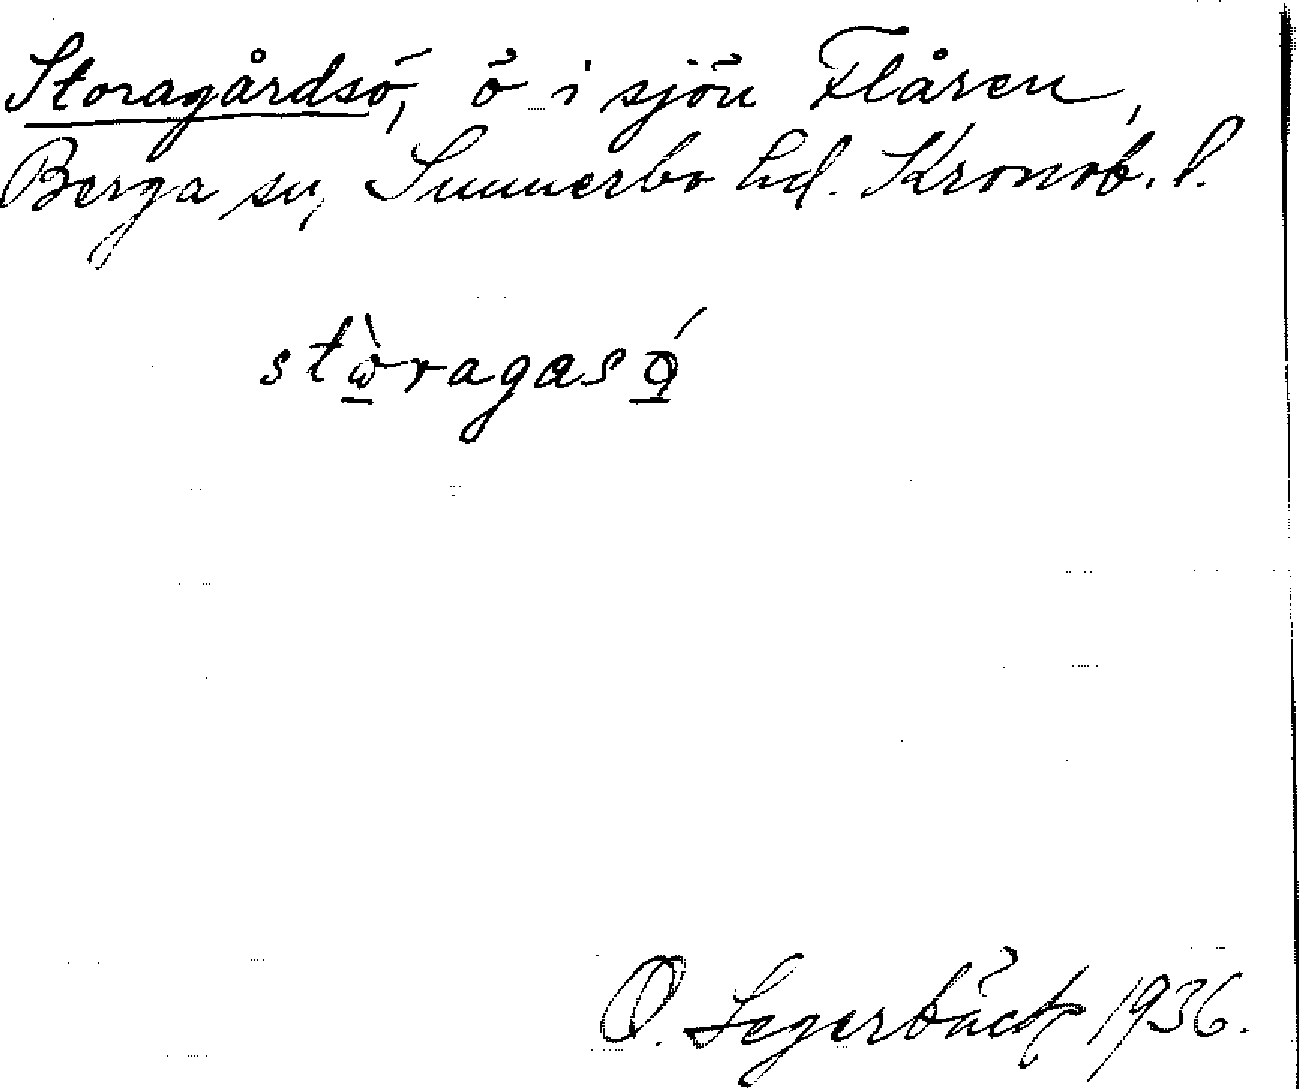 Storagårdsö, ö i sjön Flåren,
Berga sn, Sunnerbo hd. Kronob. l.
stὼ̱ragasǫ̱́
O. Segerbäck 1936.